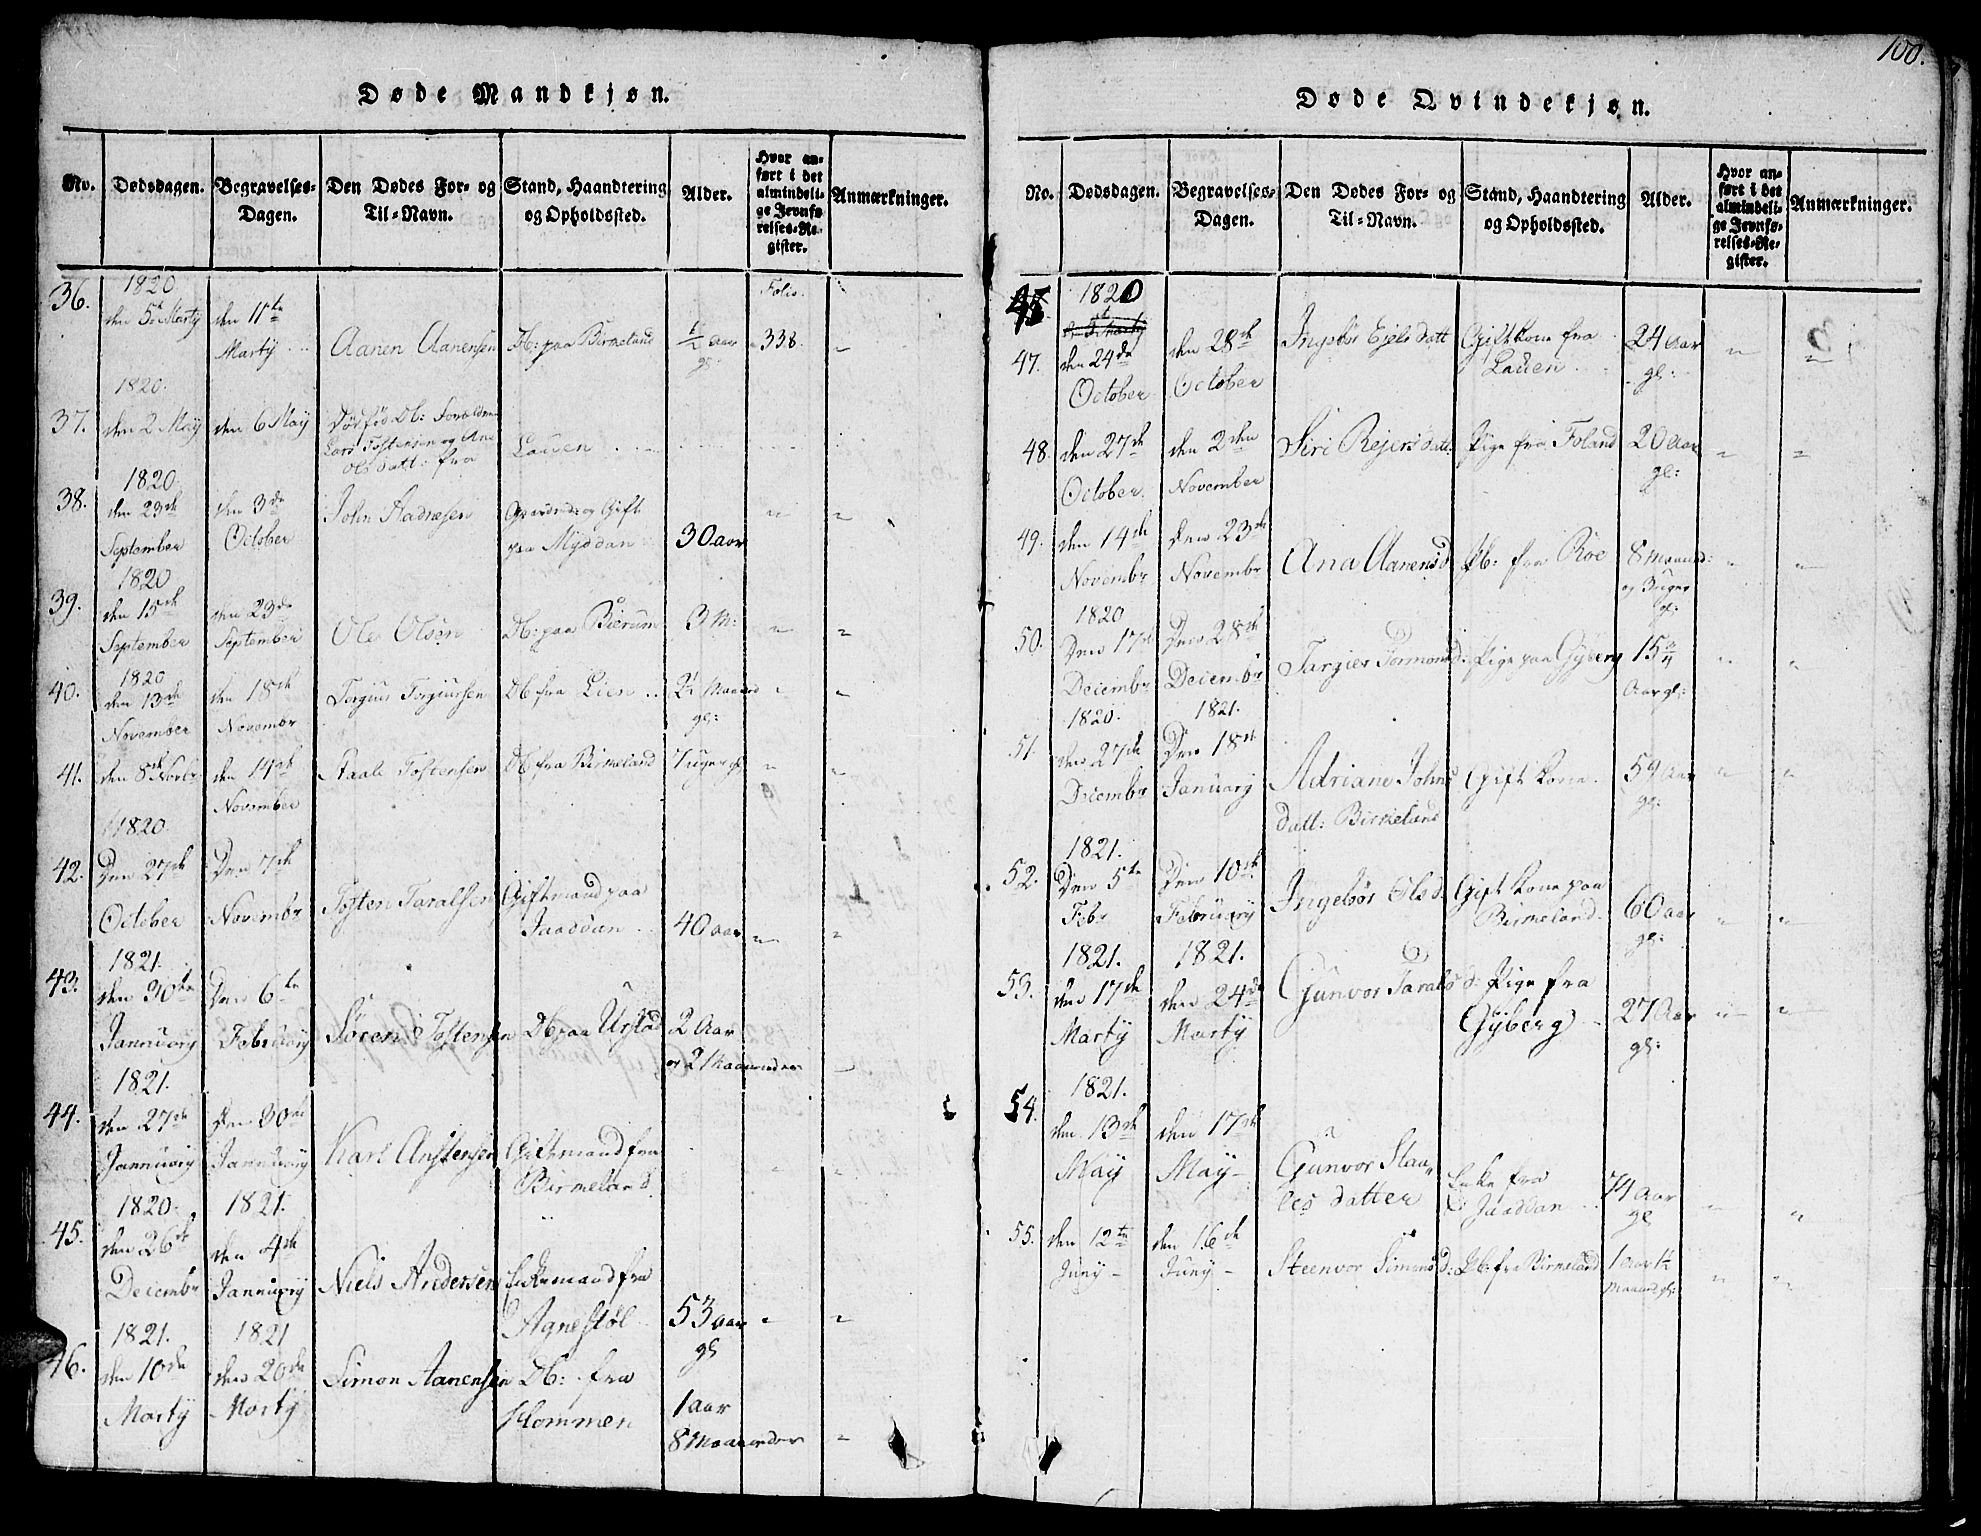 100.
Døde Mandkjøn.
No. Dødsdagen. Begravelses-Dagen. Den Dødes For- og Til-Navn. Stand, Haandtering og Opholdssted. Alder. Hvor anført i det almindelige Jevnførelses-Register. Anmærkninger.
36. 1820 den 5te Marty den 11te Marty Aanen Aanensen Db: paa Birmeland 1/2 Aar gl: Folio. 338. "
37. 1820. den 2 May den 6 May Dødfød Db: Forældre Lars Tostensen og Ane Ols datt: fra Lauen
38. 1820. den 23de September den 3de October John Gift paa Myddan 30 aar " "
39. 1820 den 15de September den 23de September Ole Olsen Db: paa Bierum 3 M: " "
40. 1820 den 13de November den 18de November Torgius Torgiursen Db fra Lien 2 1/2 Maaned gl: " "
41. den 8de Novbr den 14de November Staale Tostensen Db fra Birmeland 7 uger gl " "
42. 1820. Den 27de October Den 7de Novembr Tosten Taralsen Giftmand paa Jaaddan 40 aar " "
43. 1821. den 30te Jannuary Den 6te February Søren Tostensen Db paa Urstad 2 Aar og 2 Maaneder "
44. 1821. den 27de Jannuary Den 30te Jannuary Karl Anstensen Giftmand fra Birmeland " "
45. 1820. den 26de Decembr 1821. den 4de Jannuary Niels Andersen Enkemand fra Agnestøl 53 aar gl " "
46. 1821. den 10de Marty 1821 den 20de Marty Simon Aanensen Db: fra Hommen 1 aar 8 Maaneder "
Døde Qvindekjøn.
No. Dødsdagen. Begravelses-Dagen. Den Dødes For- og Til-Navn. Stand, Haandtering og Opholdssted. Alder. Hvor anført i det almindelige Jevnførelses-Register. Anmærkninger.
47. 1820 den 24de October den 28de October Ingebør Ejels datt Gift Kone fra Lauen 24 Aar gl: " "
48. den 27de October. den 2den November Siri Rejersdatt. Pige fra Foland 20 Aar gl: " "
49. den 14de Novembr den 23de Novembr Ana Aanensd Pb: fra Roe 8 Maaned: og 3 uger gl: " "
50. 1820 Den 17de Decembr Den 28de Decembr Targier Tormonsd: Pige paa Gyberg 15 3/4 Aar gl: " "
51. 1820. den 27de Decembr 1821. Den 18de January Adriane Johns datt: Birkeland Gift Kone. 54 Aar gl: " "
52. 1821. Den 5te Febr Den 10de February Ingebør Olsd. Gift Kone paa Birmeland. 60 aar gl: " "
53. 1821. den 17de Marty 1821. den 24de Marty Gunvor Taralsd: Pige fra Gyberg 27 Aar gl: " "
54. 1821. den 13de May den 17de May Gunvor Staales datter Enke fra Jaaddan 74 aar gl " "
55. den 12te Juny den 16de Juny Steenvor Simonsd: Pb: fra Birmeland 1 aar 1 1/2 Maaned gl: " "